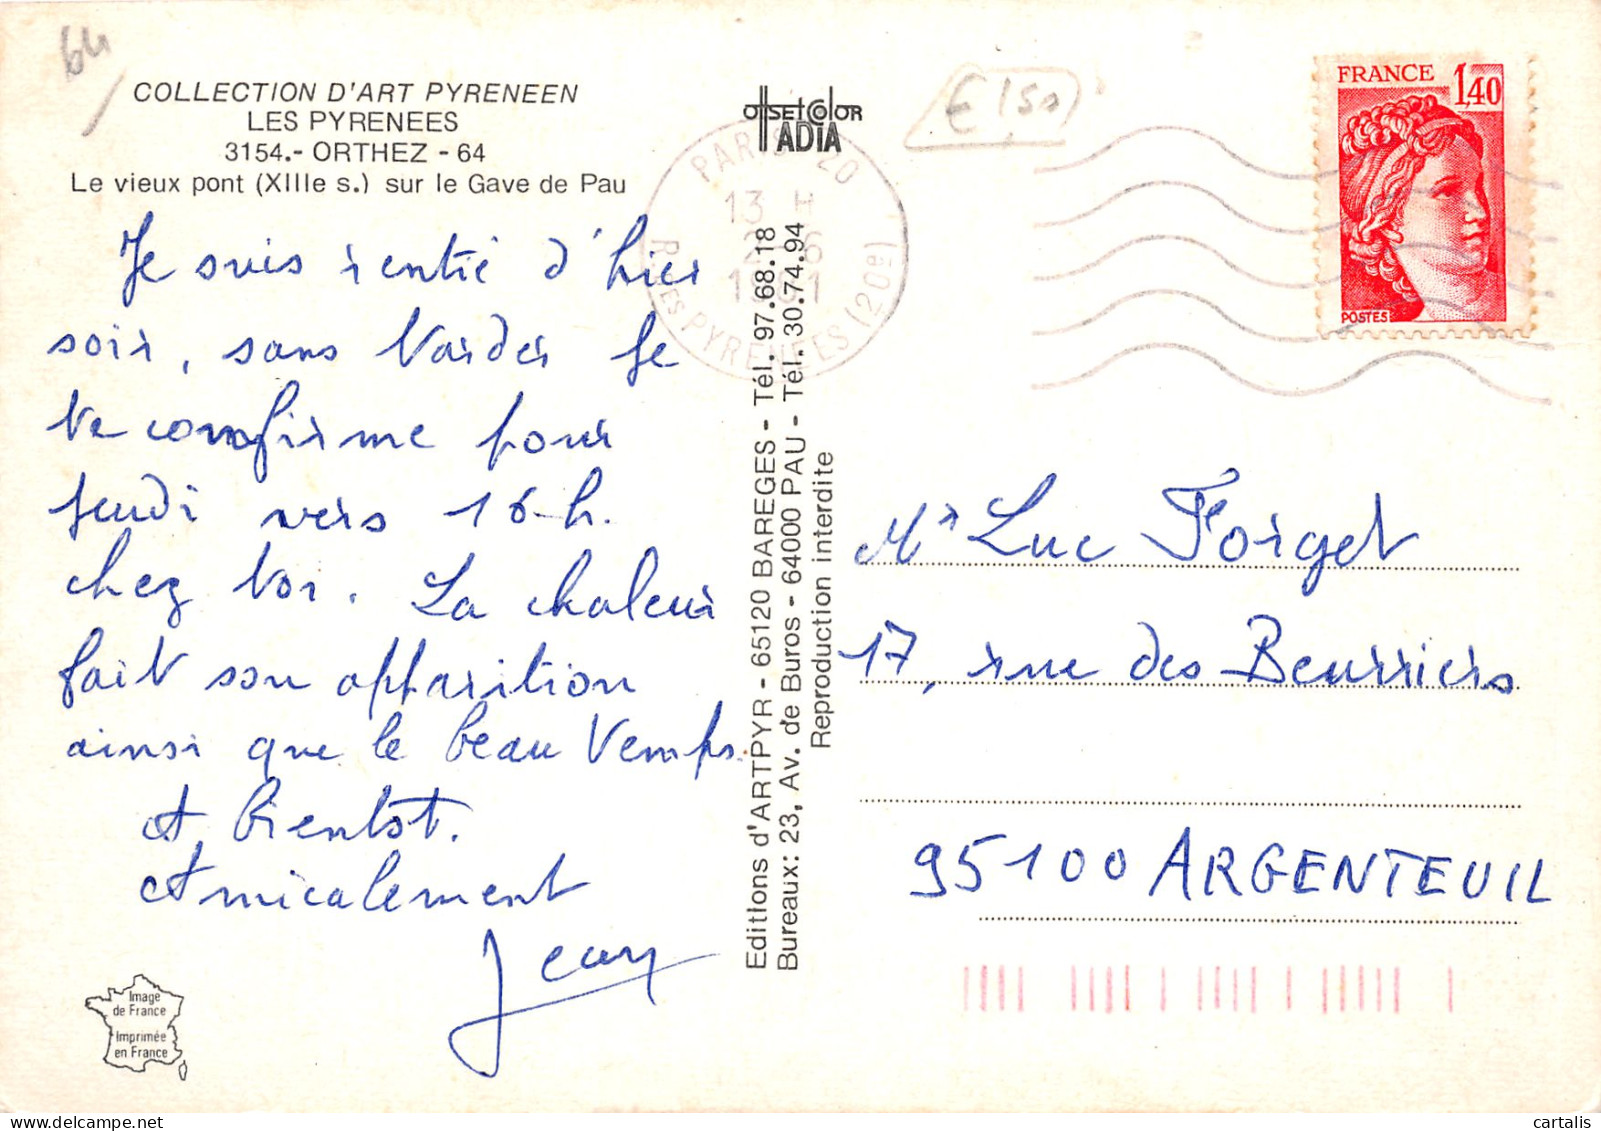 64
COLLECTION D'ART PYRENEEN
LES PYRENEES
3154.- ORTHEZ - 64
Le vieux pont (XIIIe s.) sur le Gave de Pau
Je suis rentré d'hier
soir, sans tarder je
te confirme pour
jeudi vers 16 h.
chez toi. La chaleur
fait son apparition
ainsi que le beau temps.
A bientot.
Amicalement
Jean
Image
de France
Imprimée
en France
OffsetColor
ADIA
PARIS 20
13 H
1981
R. DES PYRENEES (20e)
Editions d'ARTPYR - 65120 BAREGES - Tél. 97.68.18
Bureaux: 23, Av. de Buros - 64000 PAU - Tél. 30.74.94
Reproduction interdite
€ 1,50
FRANCE 1,40
POSTES
Mr Luc Forget
17, rue des Beurriers
95100 ARGENTEUIL
cartalis